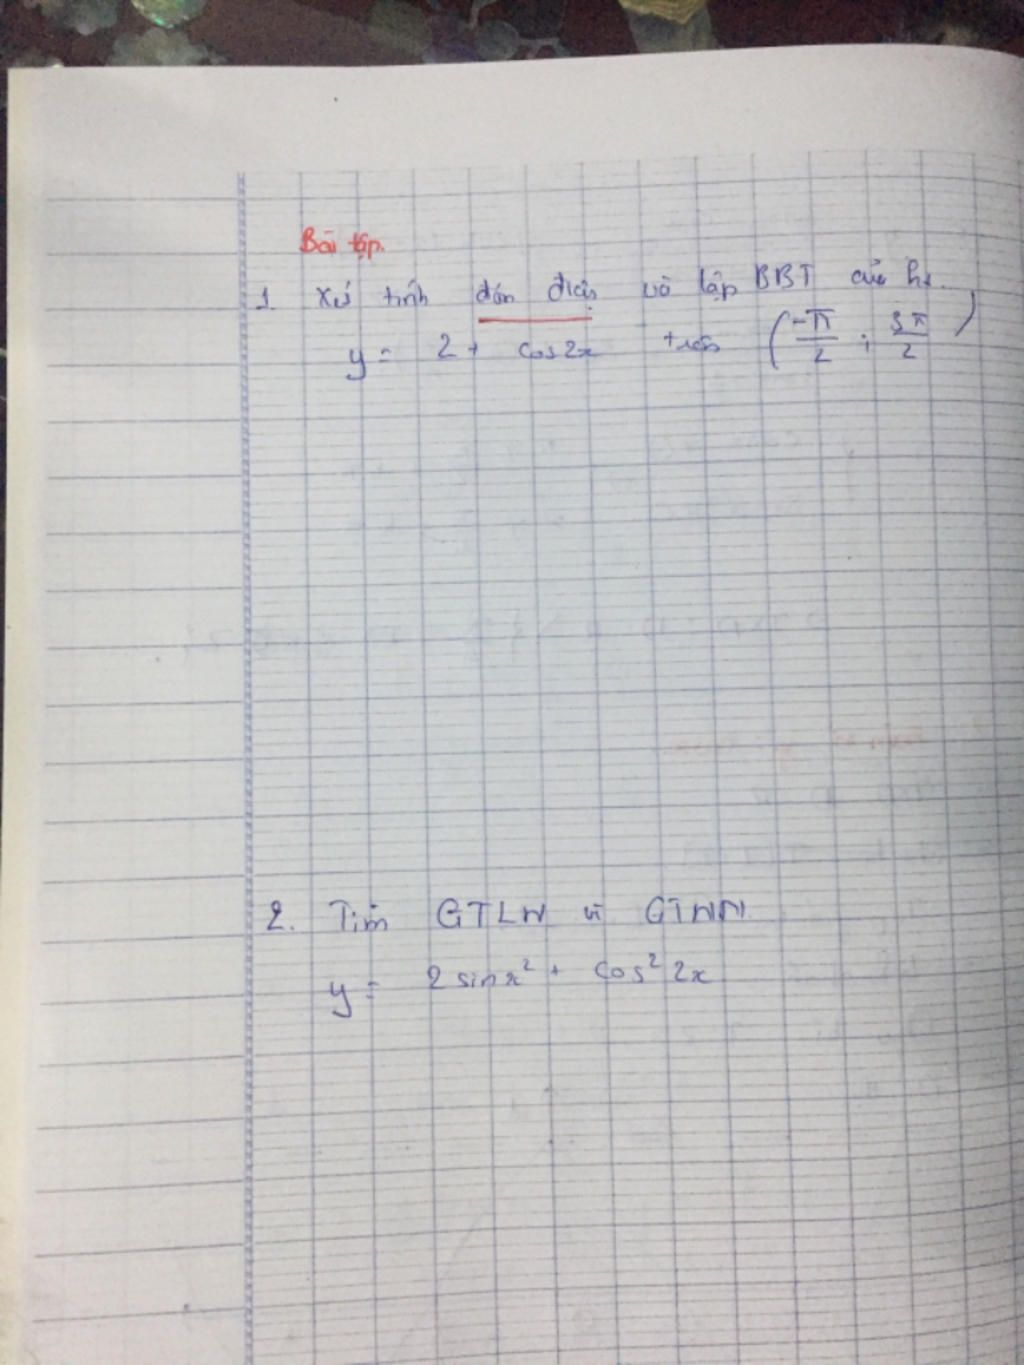 Bài tập.
1. Xét tính đơn điệu và lập BBT của hs.
y = 2 + cos2x trên (-π/2 ; 3π/2)
2. Tìm GTLN và GTNN
y = 2 sin x² + cos² 2x